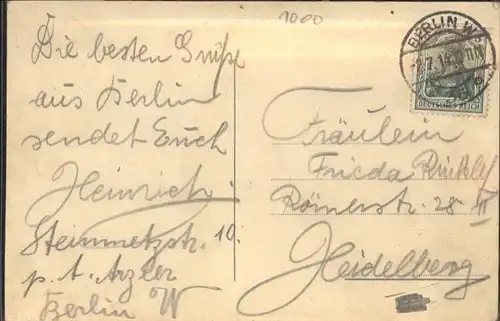 1000
Die besten Grüße
aus Berlin
sendet Euch
Heinrich.
Steinmetzstr. 10.
p. A. Arzler
Berlin W
BERLIN W
7.14
DEUTSCHES REICH
Fräulein
Frieda
Römerstr. 28 III
Heidelberg